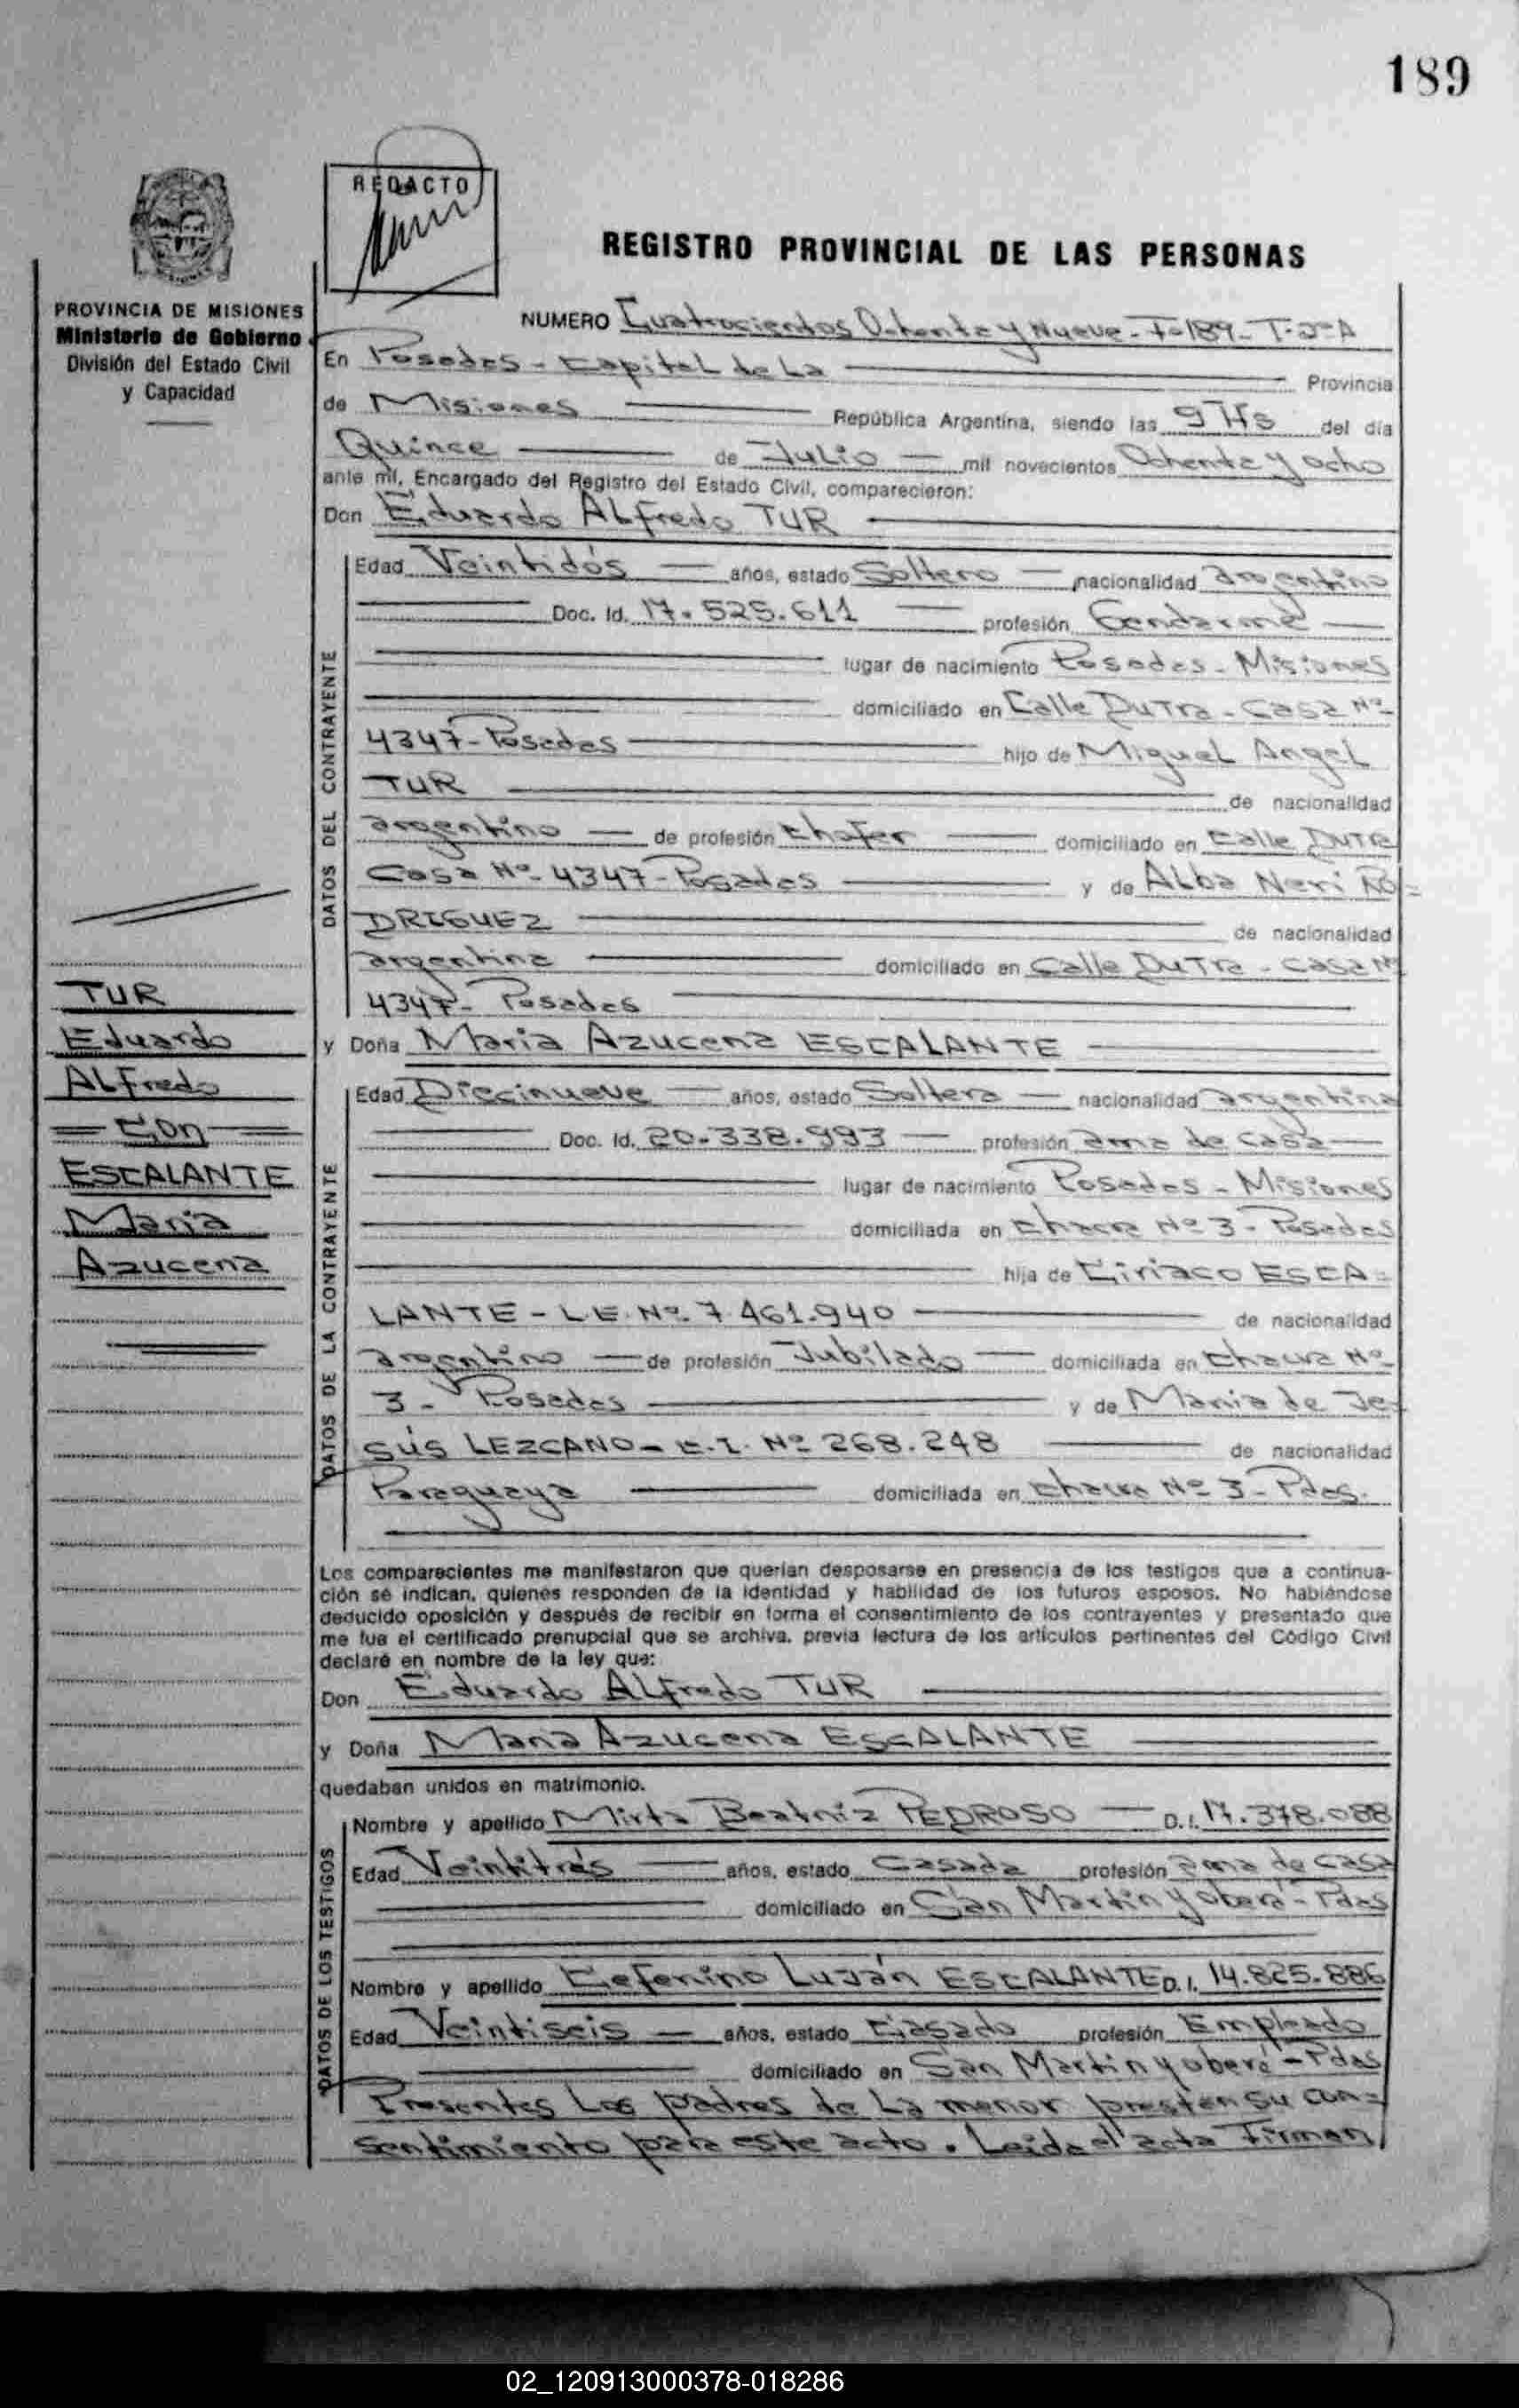 189
REDACTO
REGISTRO PROVINCIAL DE LAS PERSONAS
PROVINCIA DE MISIONES
Ministerio de Gobierno
División del Estado Civil
y Capacidad
NUMERO Cuatrocientos Ochenta y Nueve - F-189 - T-2º-A
En Posadas - Capital de La Provincia
de Misiones República Argentina, siendo las 9 Hs del día
Quince de Julio mil novecientos Ochenta y ocho
ante mí, Encargado del Registro del Estado Civil, comparecieron:
Don Eduardo ALfredo TUR
DATOS DEL CONTRAYENTE
Edad Veintidós años, estado Soltero nacionalidad argentino
Doc. Id. 17.525.611 profesión Gendarme
lugar de nacimiento Posadas - Misiones
domiciliado en Calle DuTra - Casa Nº
4347 - Posadas hijo de Miguel Angel
TUR de nacionalidad
argentino de profesión Chofer domiciliado en Calle DuTra
Casa Nº 4347 - Posadas y de ALba Neri RO=
DRIGUEZ de nacionalidad
argentina domiciliado en Calle DuTra - Casa Nº
4347 - Posadas
y Doña Maria Azucena ESCALANTE
DATOS DE LA CONTRAYENTE
Edad Diecinueve años, estado Soltera nacionalidad argentina
Doc. Id. 20.338.993 profesión ama de casa
lugar de nacimiento Posadas - Misiones
domiciliada en Chacra Nº 3 - Posadas
hija de Ciriaco ESCA=
LANTE - L.E. Nº 7.461.940 de nacionalidad
argentino de profesión Jubilado domiciliada en Chacra Nº
3 - Posadas y de Maria de Je=
sús LEZCANO - C.I. Nº 268.248 de nacionalidad
Paraguaya domiciliada en Chacra Nº 3 - Pdas.
TUR
Eduardo
ALfredo
= Con =
ESCALANTE
Maria
Azucena
Los comparecientes me manifestaron que querían desposarse en presencia de los testigos que a continua-
ción se indican, quienes responden de la identidad y habilidad de los futuros esposos. No habiéndose
deducido oposición y después de recibir en forma el consentimiento de los contrayentes y presentado que
me fue el certificado prenupcial que se archiva, previa lectura de los artículos pertinentes del Código Civil
declaré en nombre de la ley que:
Don Eduardo ALfredo TUR
y Doña Maria Azucena ESCALANTE
quedaban unidos en matrimonio.
DATOS DE LOS TESTIGOS
Nombre y apellido Mirta Beatriz PEDROSO D.I. 17.378.088
Edad Veintitrés años, estado Casada profesión ama de casa
domiciliado en San Martin y oberá - Pdas
Nombre y apellido Ceferino Luján ESCALANTE D.I. 14.825.886
Edad Veintiseis años, estado Casado profesión Empleado
domiciliado en San Martin y oberá - Pdas
Presentes Los padres de La menor prestan su con=
sentimiento para este acto. Leida el acta Firman
02_120913000378-018286